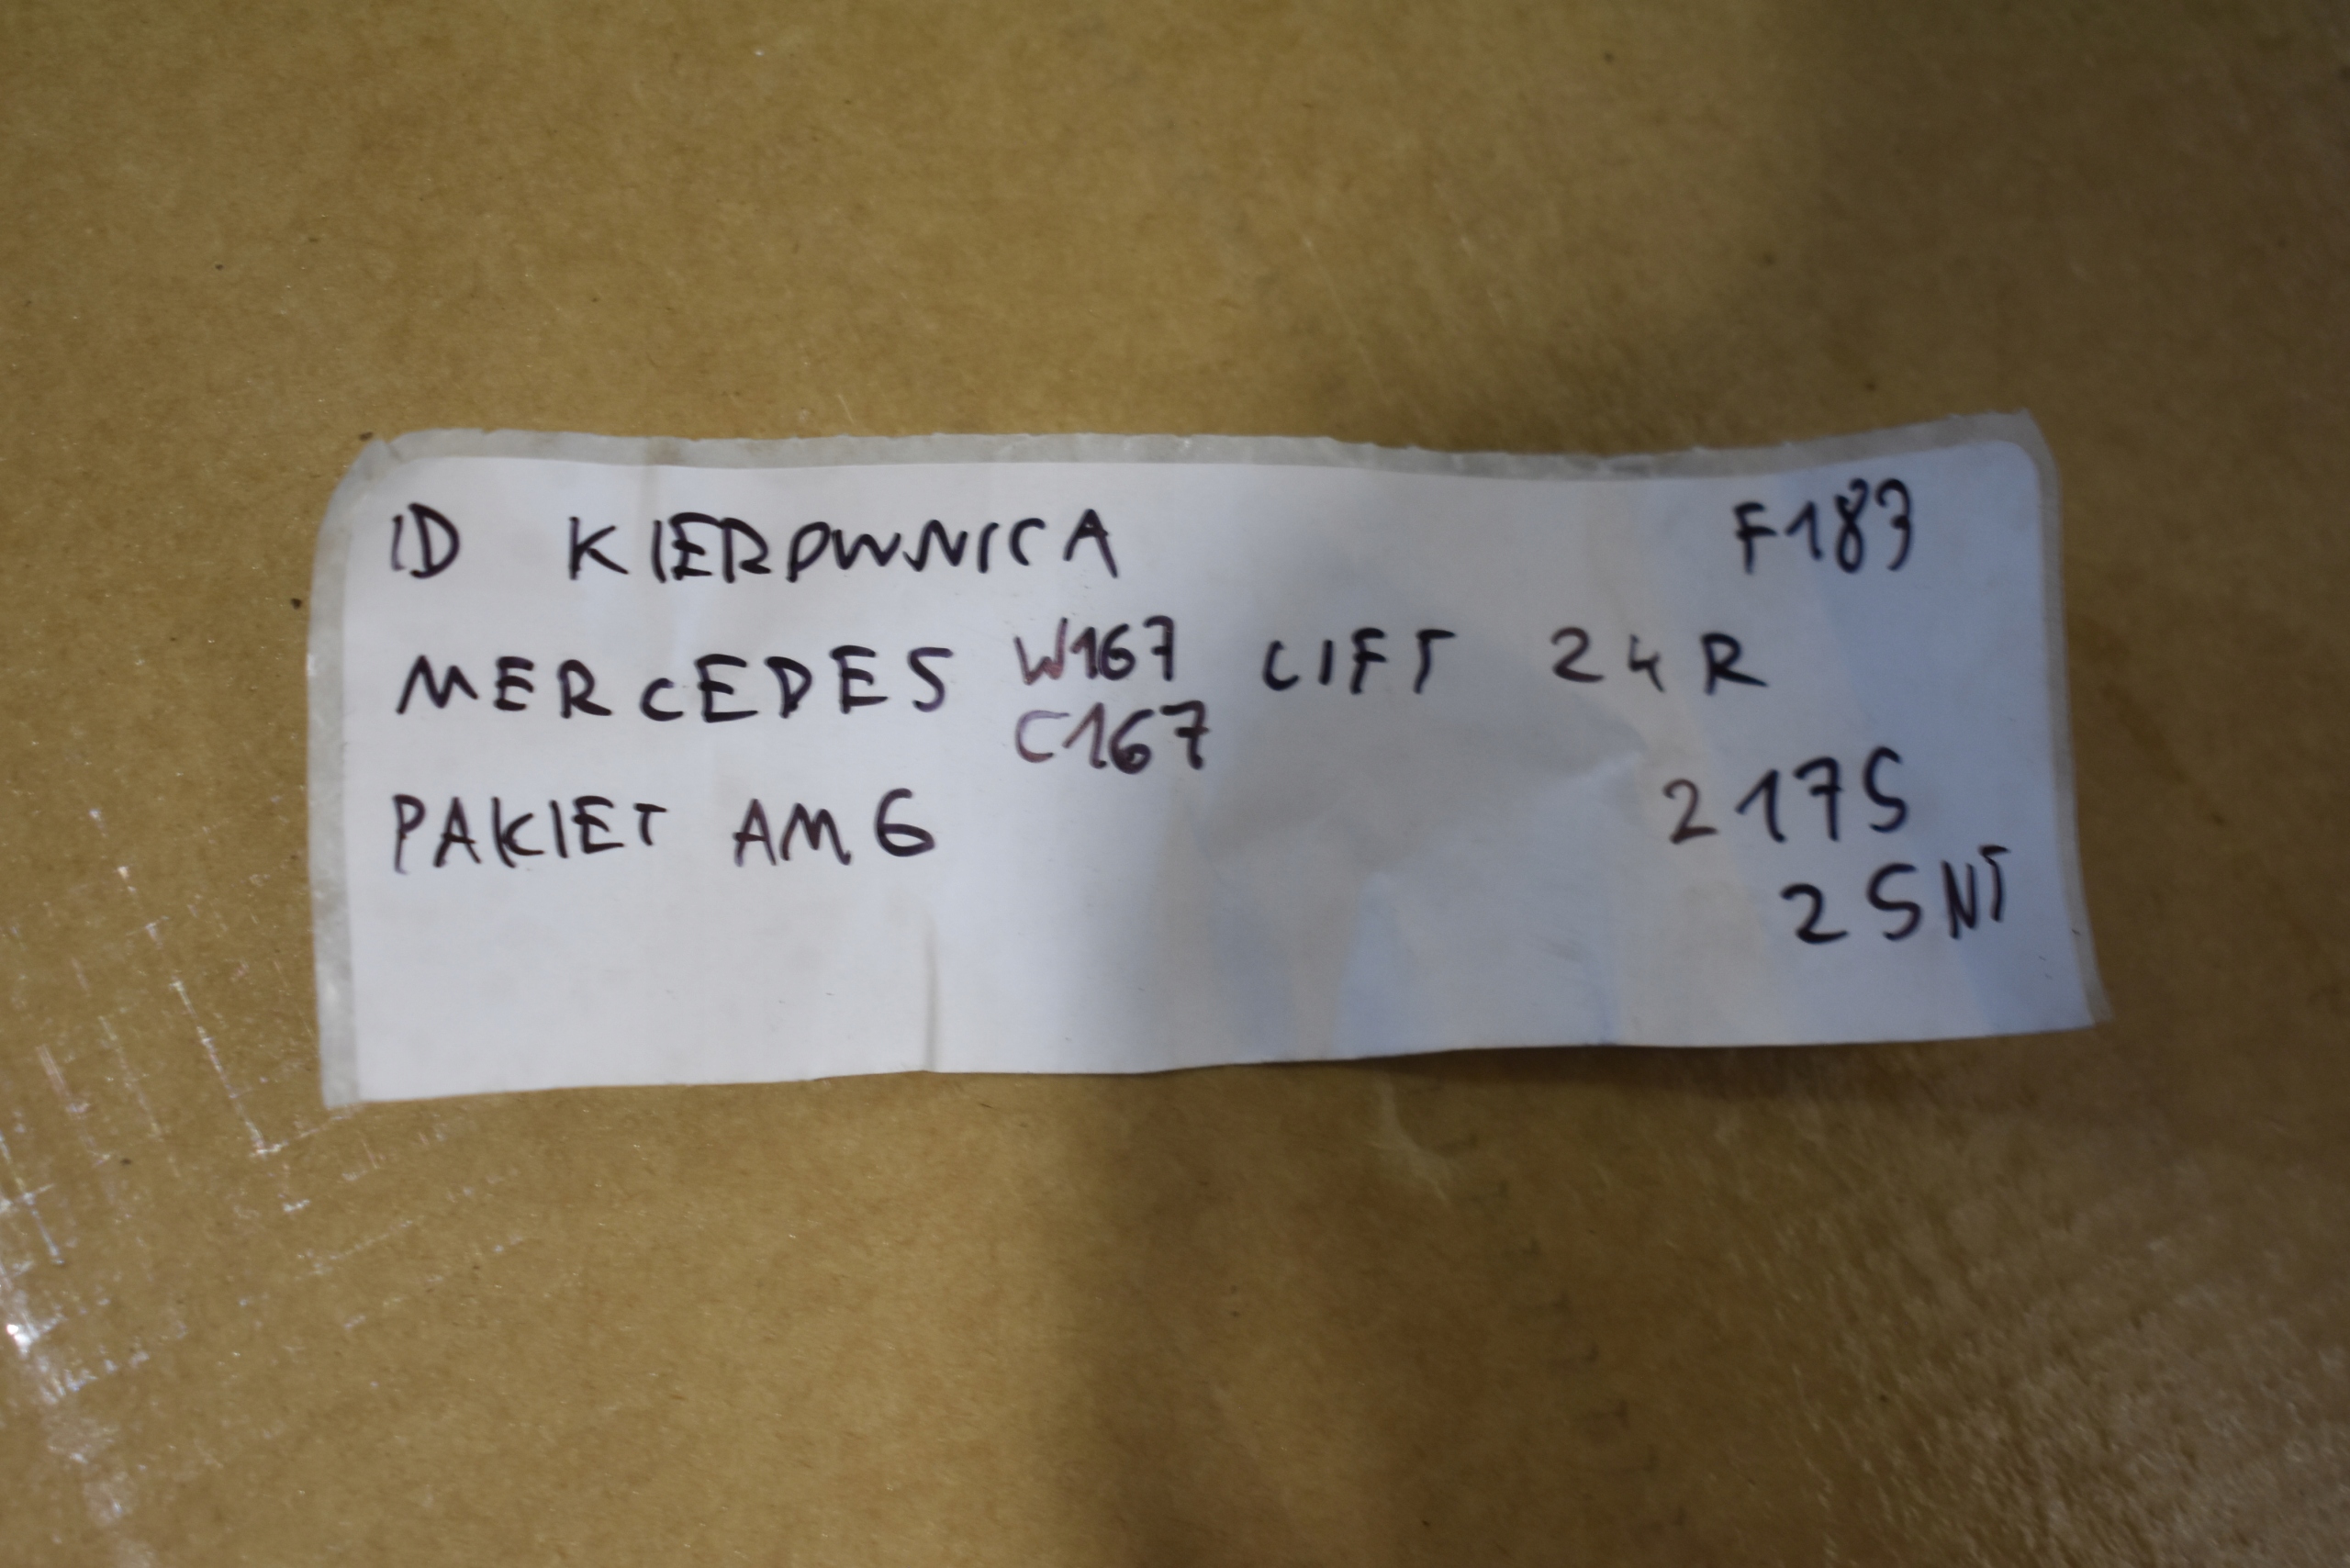 ID KIEROWNICA F183
MERCEDES W167 LIFT 24R
C167
PAKIET AMG 217S
2SNT